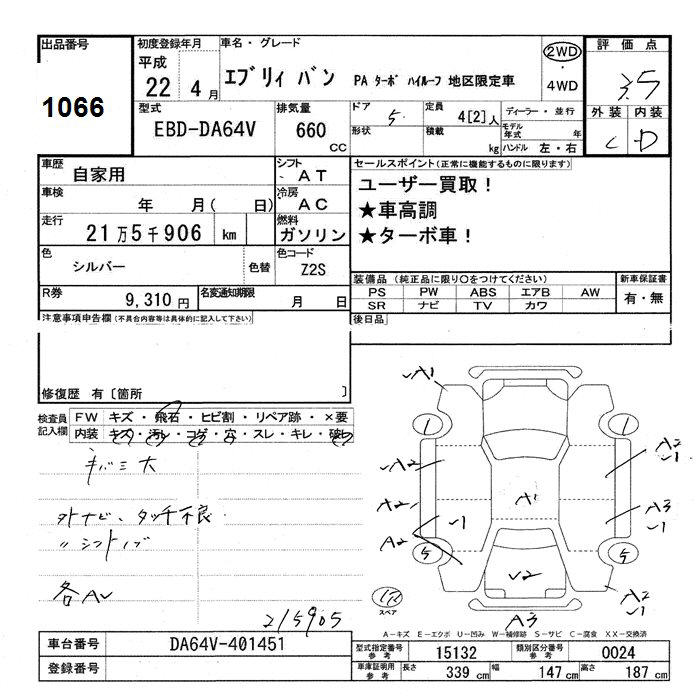 出品番号
1066
初度登録年月
平成
22 4 月
車名・グレード
エブリィ バン PA ターボ ハイルーフ 地区限定車
2WD
・
4WD
評価点
3.5
外装 内装
C D
型式
EBD-DA64V
排気量
660
CC
ドア
5
定員
4[2]人
形状
積載
kg
ディーラー・並行
モデル年式 年
ハンドル 左・右
車歴
自家用
シフト
AT
車検
年 月( 日)
冷房
AC
走行
21万5千906 km
燃料
ガソリン
色
シルバー
色替
色コード
Z2S
R券
9,310 円
名変通知期限
月 日
セールスポイント(正常に機能するものに限ります)
ユーザー買取!
★車高調
★ターボ車!
装備品 (純正品に限り○をつけてください)
PS PW ABS エアB AW
SR ナビ TV カワ
新車保証書
有・無
後日品
注意事項申告欄(不具合内容等は具体的に記入して下さい)
修復歴 有〔箇所 〕
検査員
記入欄
FW キズ・飛石・ヒビ割・リペア跡・×要
内装 キズ・汚レ・コゲ・穴・スレ・キレ・破レ
キバミ大
外ナビ、タッチ不良
〃シフトノブ
各A✓
215905
✓A1
1 1
✓A2
A2
✓1
A2
A1
A2
✓1
A3
✓1
✓1
A2
5 5
✓2
A2
✓1
スペア
A3
A－キズ E－エクボ U－凹み W－補修跡 S－サビ C－腐食 XX－交換済
車台番号 DA64V-401451
登録番号
型式指定番号
参考
15132
類別区分番号
参考
0024
車庫証明用
参考
長さ 339 cm 幅 147 cm 高さ 187 cm